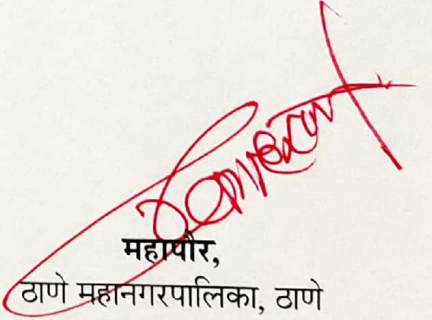 महापौर,
ठाणे महानगरपालिका, ठाणे